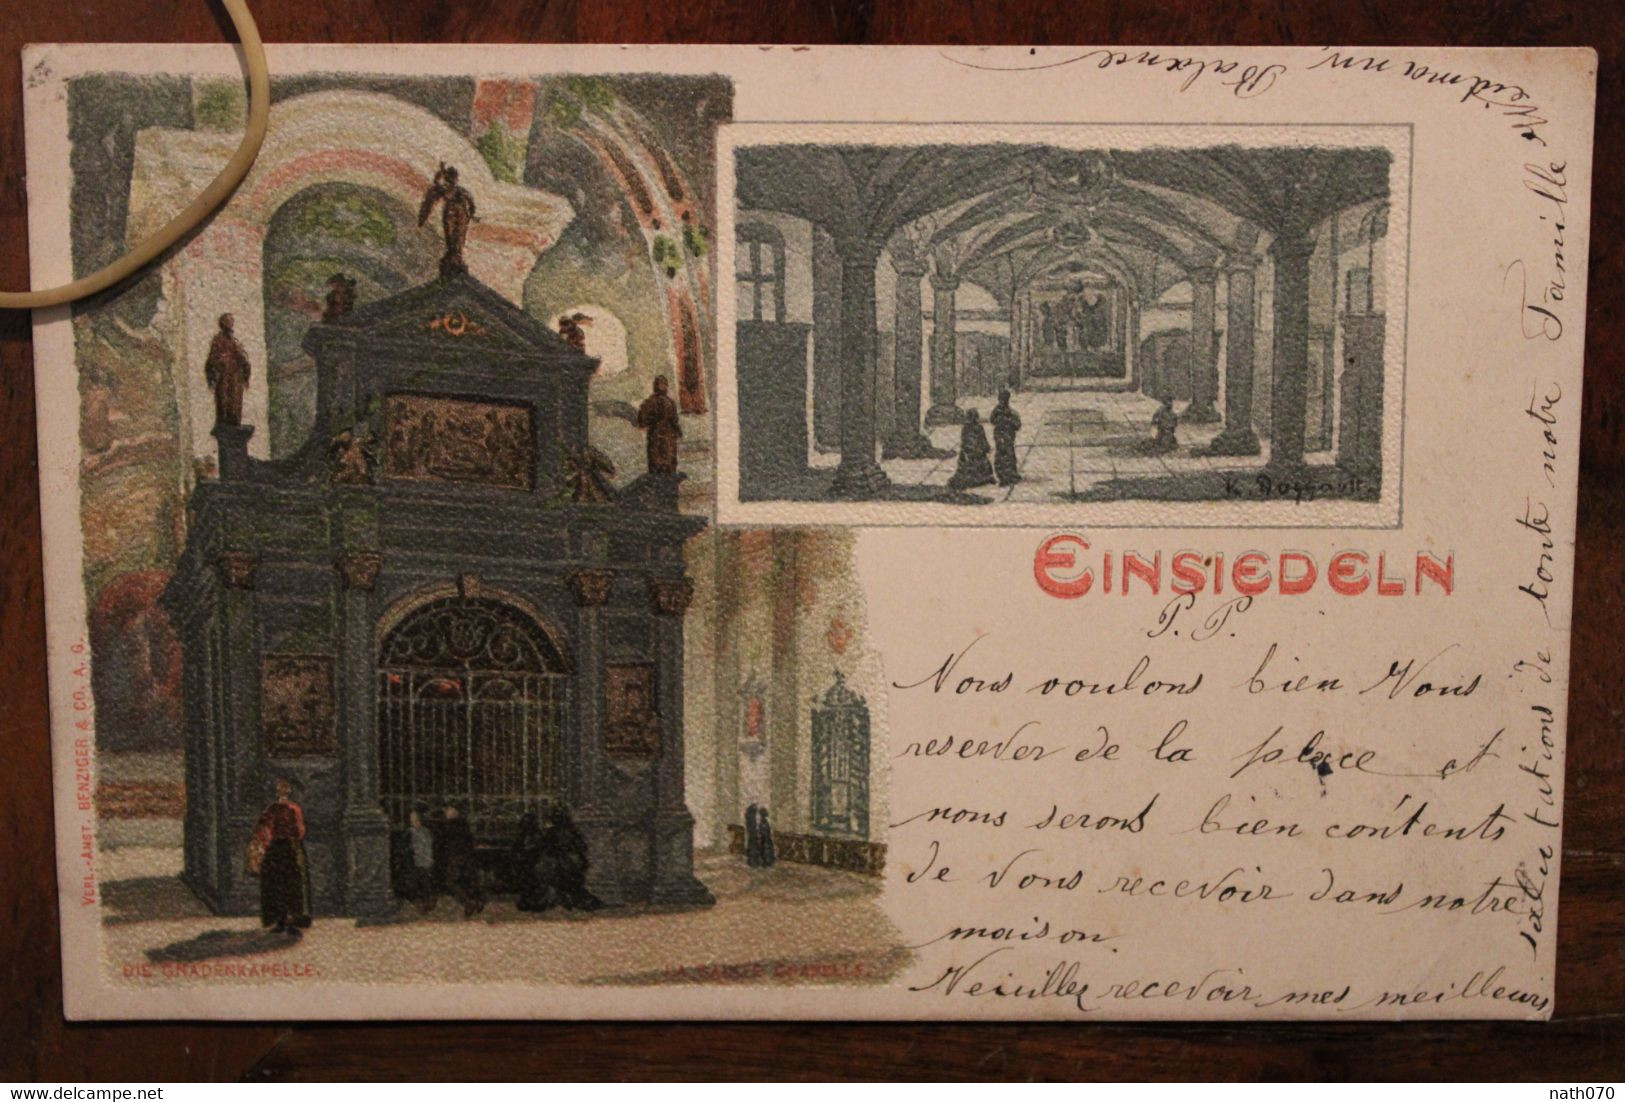 EINSIEDELN
P. P.
Nous voulons bien Vous
reserver de la place et
nous serons bien contents
de vous recevoir dans notre
maison.
Veuillez recevoir mes meilleurs
salutations de toute notre Famille
Weidmann, Balance
K. Roggault
VERL.-ANST. BENZIGER & CO. A. G.
DIE GNADENKAPELLE.
LA SAINTE CHAPELLE.
nath070